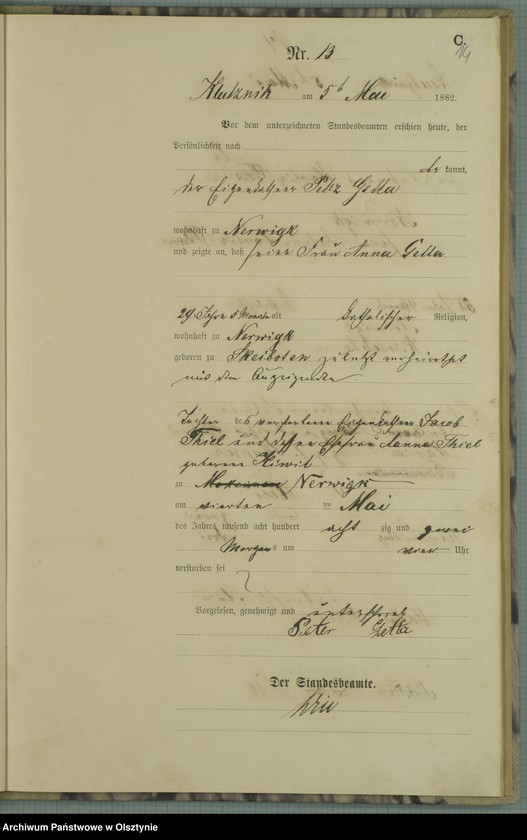 C.
14
Nr. 13
Klutznik am 5t Mai 1882.
Vor dem unterzeichneten Standesbeamten erschien heute, der
Persönlichkeit nach
be kannt,
der Eigenkäthner Getta
wohnhaft zu Nerwigk
und zeigte an, daß seine Frau Anna Getta
29 Jahre 8 Monate alt katholischer Religion,
wohnhaft zu Nerwigk
geboren zu Skeiboten zuletzt verheirathet
mit dem Anzeigenden
Tochter des verstorbenen Eigenkäthner Jacob
Thiel und dessen Ehefrau Anna Thiel
geborene Kiwit
zu Nerwigk
am vierten ten Mai
des Jahres tausend acht hundert acht zig und zwei
Morgens um vier Uhr
verstorben sei
Vorgelesen, genehmigt und unterschrieben
Peter Getta
Der Standesbeamte.
Archiwum Państwowe w Olsztynie